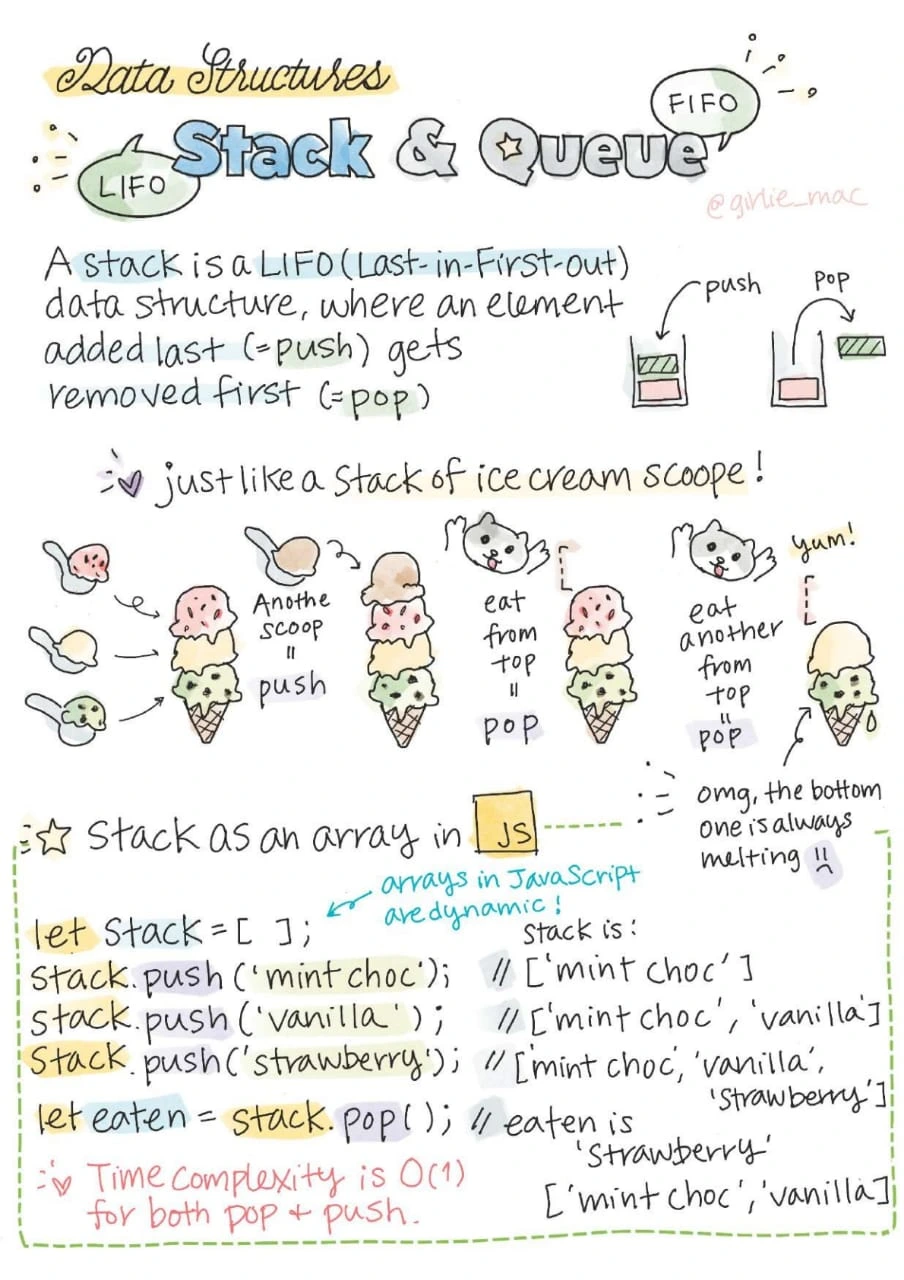 Data Structures
LIFO
Stack & Queue
FIFO
@girlie_mac
A stack is a LIFO (Last-in-First-out)
data structure, where an element
added last (=push) gets
removed first (=pop)
push
pop
just like a Stack of ice cream scoope!
Anothe
scoop
=
push
eat
from
top
=
pop
eat
another
from
top
=
pop
yum!
omg, the bottom
one is always
melting
Stack as an array in JS
arrays in JavaScript
are dynamic!
let Stack = [ ];
Stack is:
Stack.push('mint choc'); // ['mint choc']
Stack.push('vanilla'); // ['mint choc', 'vanilla']
Stack.push('strawberry'); // ['mint choc, 'vanilla',
'Strawberry']
let eaten = stack.pop(); // eaten is
'Strawberry'
['mint choc','vanilla]
Time complexity is O(1)
for both pop + push.